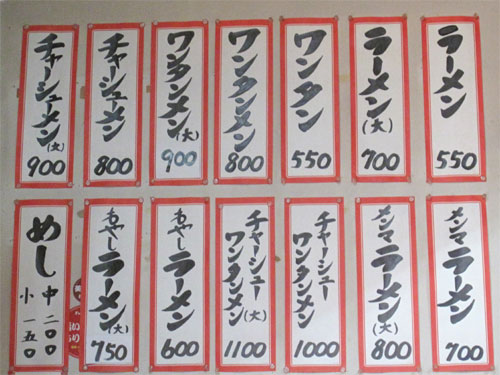 ラーメン
550
ラーメン(大)
700
ワンタン
550
ワンタンメン
800
ワンタンメン(大)
900
チャーシューメン
800
チャーシューメン(大)
900
メンマ
ラーメン
700
メンマ
ラーメン(大)
800
チャーシュー
ワンタンメン
1000
チャーシュー(大)
ワンタンメン
1100
もやし
ラーメン
600
もやし
ラーメン(大)
750
めし
中二〇〇
小一五〇